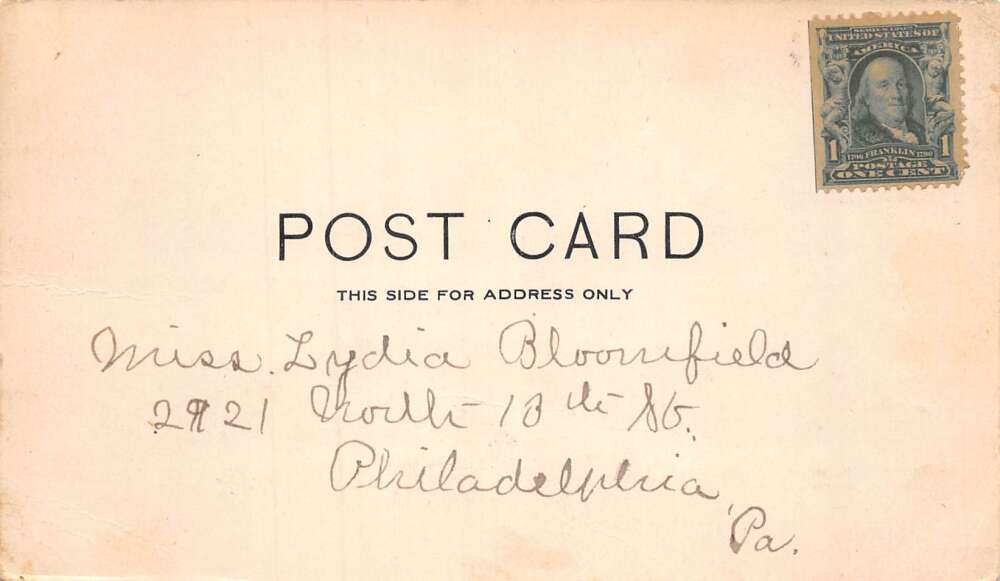 SERIES 1902
UNITED STATES OF
AMERICA
1 1706 FRANKLIN 1790 1
POSTAGE
ONE CENT
POST CARD
THIS SIDE FOR ADDRESS ONLY
Miss. Lydia Bloomfield
2921 North 13th St.
Philadelphia,
Pa.